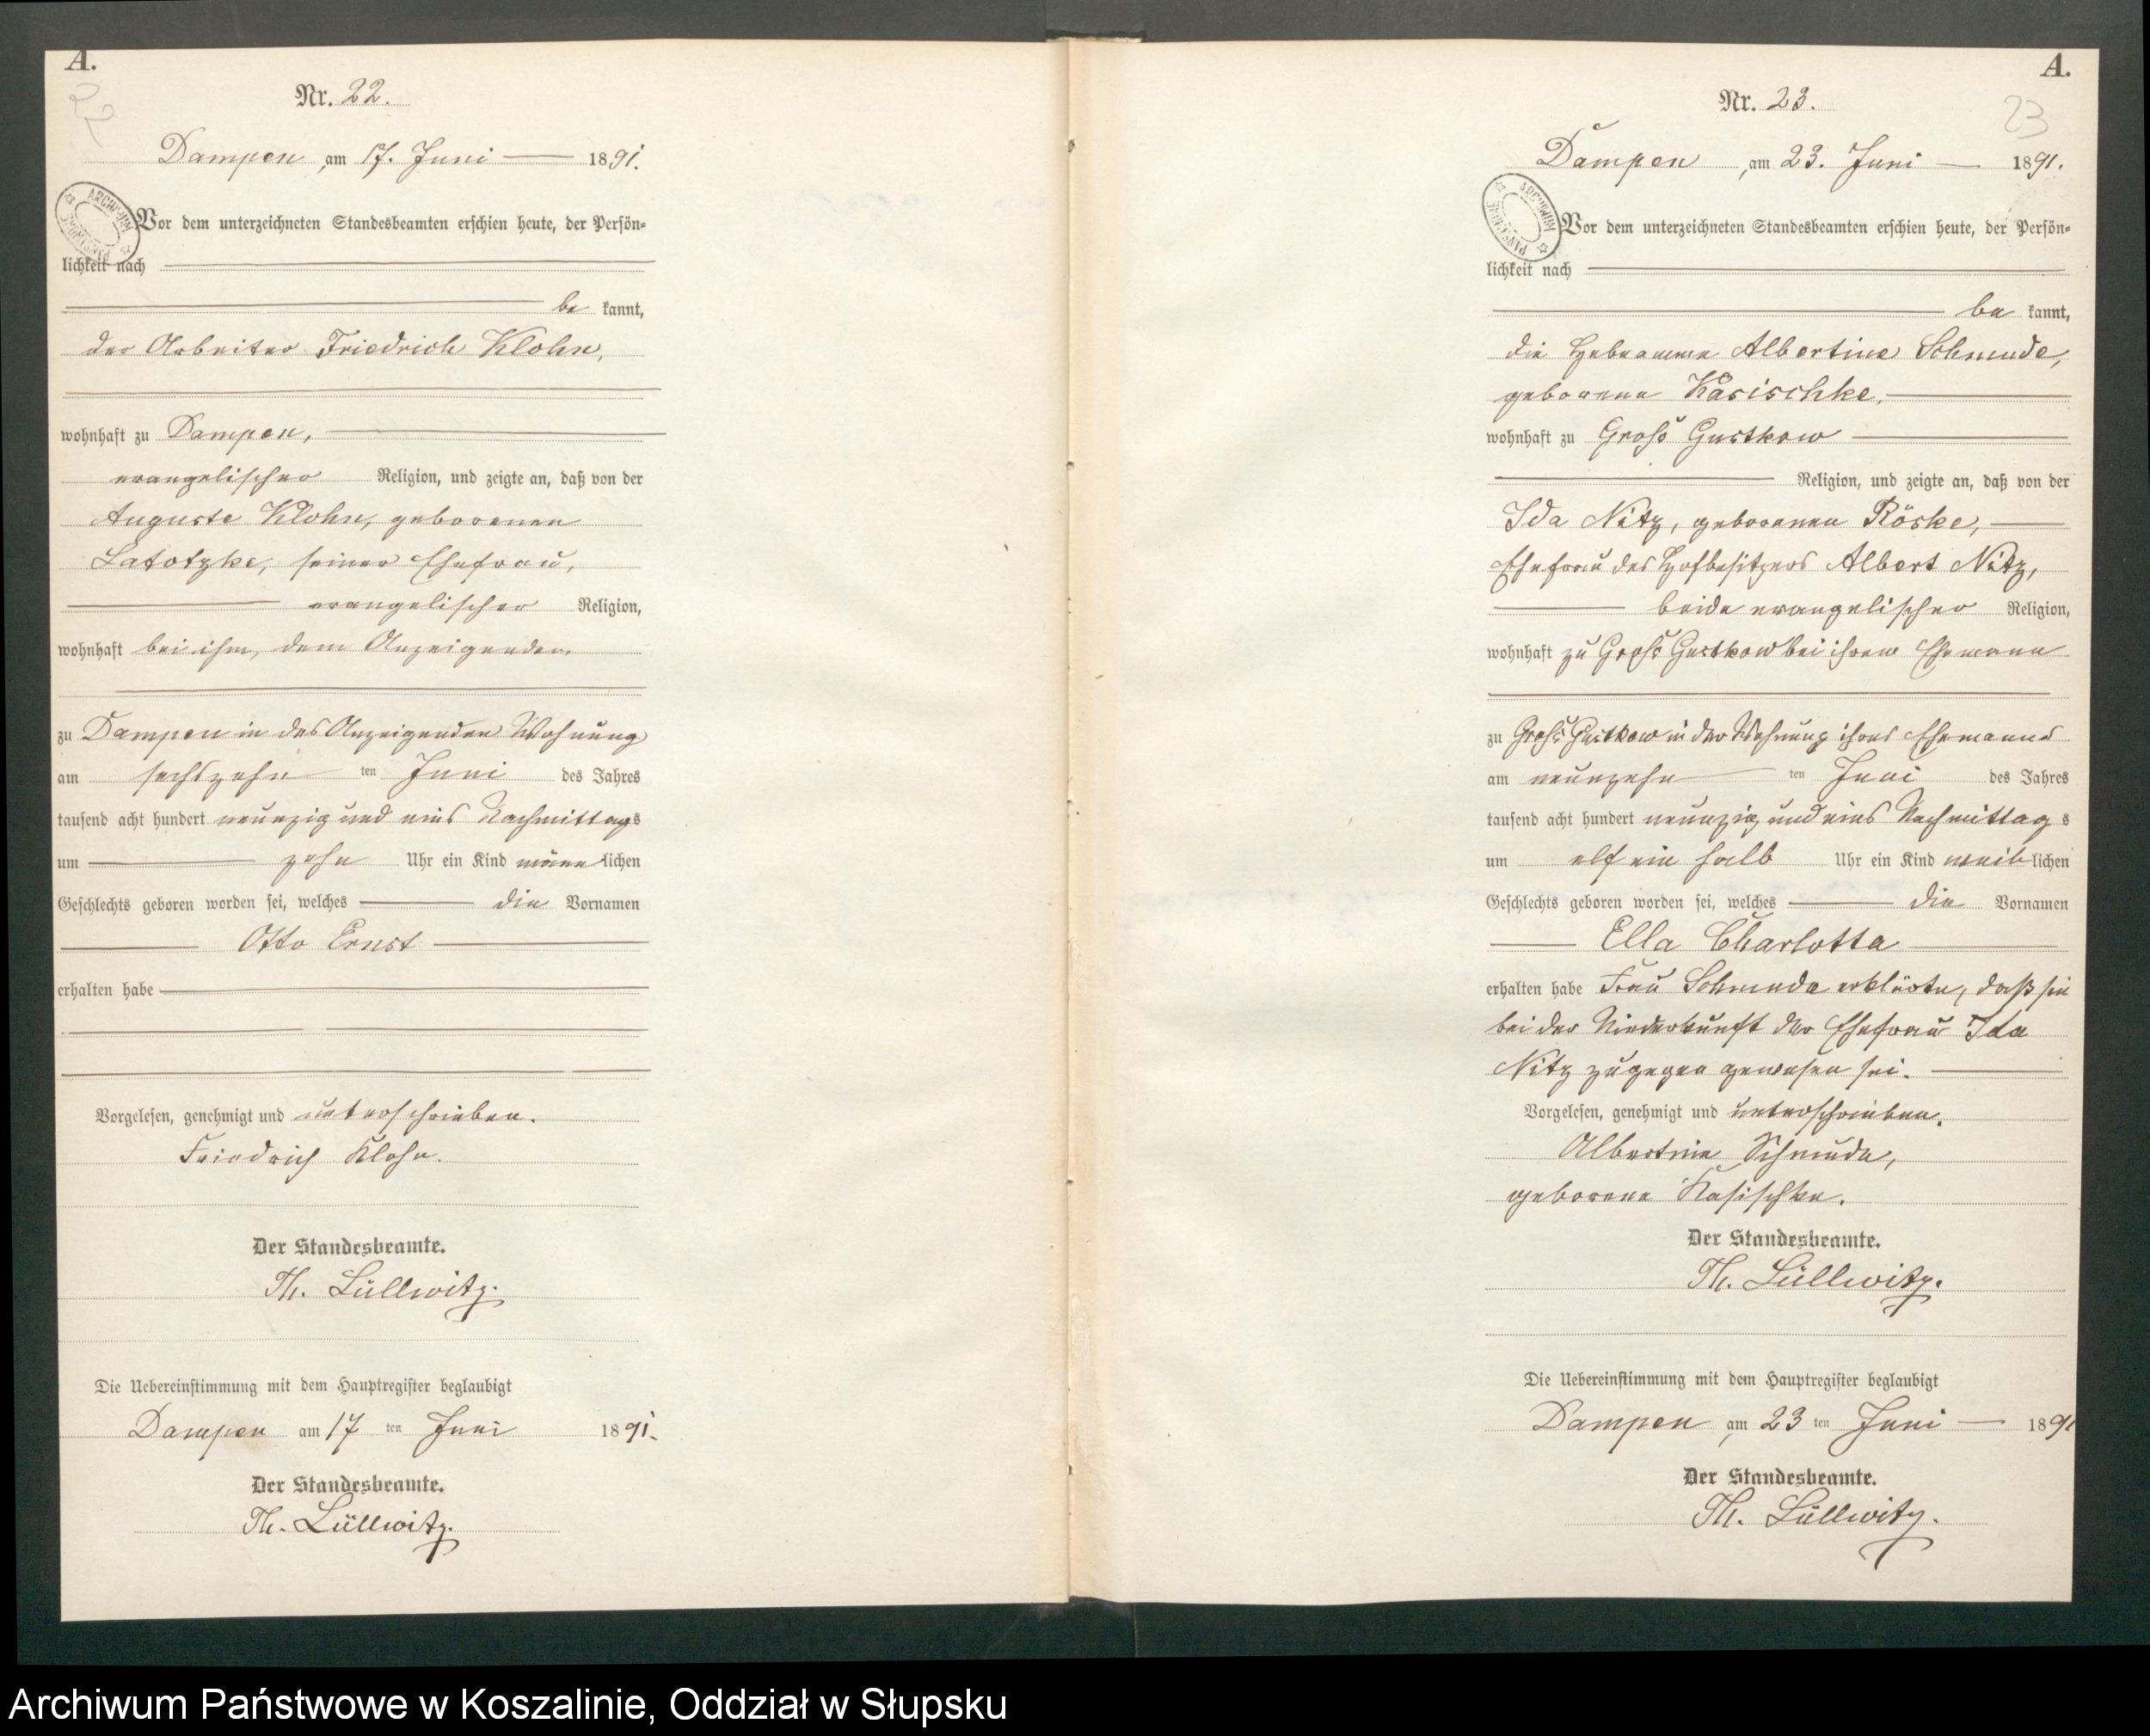 A.
22
Nr. 22.
Dampen, am 17. Juni 1891.
Vor dem unterzeichneten Standesbeamten erschien heute, der Persön-
lichkeit nach
be kannt,
der Arbeiter Friedrich Klohn,
wohnhaft zu Dampen,
evangelischer Religion, und zeigte an, daß von der
Auguste Klohn, geborenen
Latotzke, seiner Ehefrau,
evangelischer Religion,
wohnhaft bei ihm, dem Anzeigenden
zu Dampen in des Anzeigenden Wohnung
am sechszehn ten Juni des Jahres
tausend acht hundert neunzig und eins Nachmittags
um zehn Uhr ein Kind männlichen
Geschlechts geboren worden sei, welches die Vornamen
Otto Ernst
erhalten habe
Vorgelesen, genehmigt und unterschrieben.
Friedrich Klohn.
Der Standesbeamte.
Th. Lüllwitz.
Die Uebereinstimmung mit dem Hauptregister beglaubigt
Dampen am 17 ten Juni 1891.
Der Standesbeamte.
Th. Lüllwitz.
A.
23
Nr. 23.
Dampen, am 23. Juni 1891.
Vor dem unterzeichneten Standesbeamten erschien heute, der Persön-
lichkeit nach
be kannt,
die Hebeamme Albertine Schmude,
geborene Kasischke,
wohnhaft zu Groß Gustkow
Religion, und zeigte an, daß von der
Ida Nitz, geborenen Röske,
Ehefrau des Hofbesitzers Albert Nitz,
beide evangelischer Religion,
wohnhaft zu Groß Gustkow bei ihrem Ehemann
zu Groß Gustkow in der Wohnung ihres Ehemanns
am neunzehn ten Juni des Jahres
tausend acht hundert neunzig und eins Nachmittag s
um elf ein halb Uhr ein Kind weiblichen
Geschlechts geboren worden sei, welches die Vornamen
Ella Charlotta
erhalten habe Frau Schmude erklärte, daß sie
bei der Niederkunft der Ehefrau Ida
Nitz zugegen gewesen sei.
Vorgelesen, genehmigt und unterschrieben.
Albertine Schmude,
geborene Kasischke.
Der Standesbeamte.
Th. Lüllwitz.
Die Uebereinstimmung mit dem Hauptregister beglaubigt
Dampen, am 23 ten Juni 1891
Der Standesbeamte.
Th. Lüllwitz.
Archiwum Państwowe w Koszalinie, Oddział w Słupsku